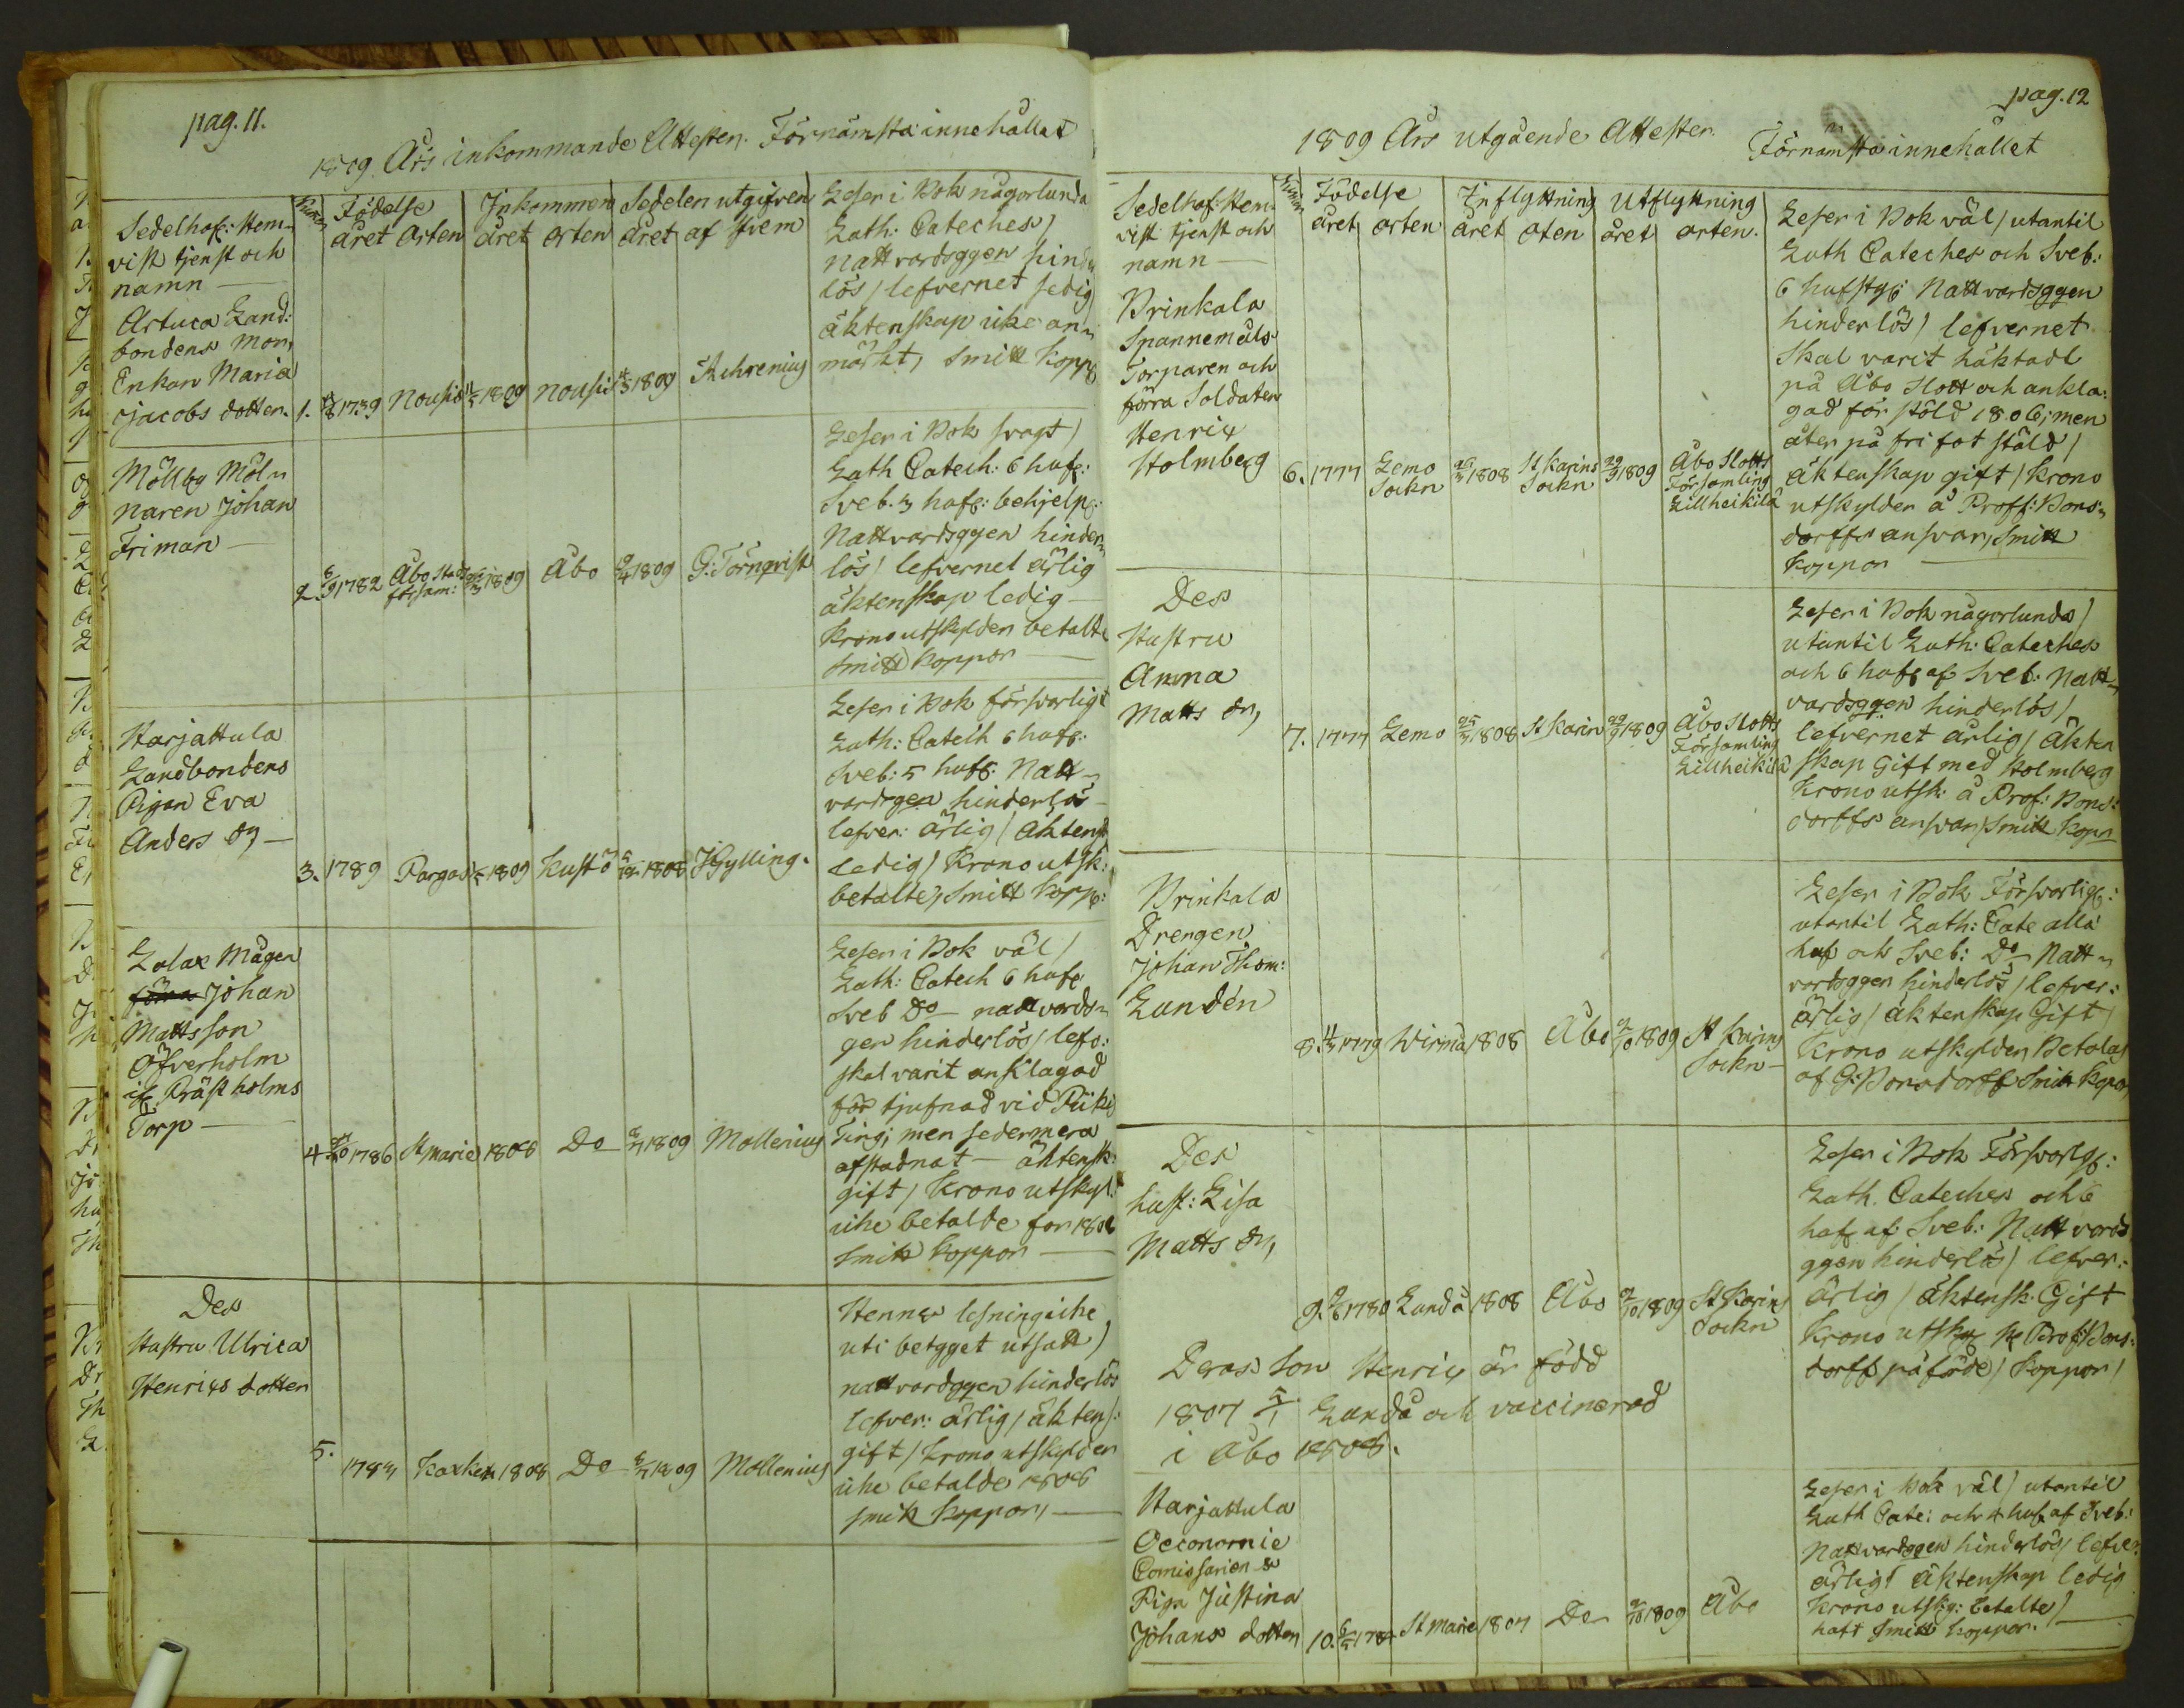 pag. 11.
1809 Års inkommande Attester. Förnämsta innehållet
Sedelhaf: Hem-
vist tjenst och
namn —
Numer
Födelse
året Orten
Inkommen
året orten
Sedelen utgifven
året af Hvem
Artuca Land:
bondens Mor,
Enkan Maria
Jacobs dotter. 1. 1739 Nousis 1809 Nousis 1809
Läser i Bok någorlunda
Luth: Cateches /
nattvardsggen hinder
lös / lefvernet sedig
äktenskap icke an-
märkt, Smitt kopp
Möllby Möl-
naren Johan
Friman —
2. 1782 Åbo Stads församl: 1809 Åbo 1809 G: Törnqvist
Läser i Bok svagt /
Luth Catech: 6 huf:
Sveb. 3 huf: behjelp:
Nattvardsggen hinder-
lös / lefvernet ärlig
äktenskap ledig —
Krono utskylder betalte
Smitt koppor —
Harjattula
Landbondens
Pigan Eva
Anders dr —
3. 1789 Pargas 1809 Kustö 1808 J Gylling.
Läser i Bok försvarligt
Luth: Catech 6 huf:
Sveb: 5 huf: Natt-
vardsgen hinderlös —
lefver: ärlig / äktensk
ledig / Krono utsk:
betalte, Smitt kopp:
Lalax Mågen
förra Johan
Mattsson
Öfverholm
if. Präst holms
Torp —
4. 1786 St Marie 1808 Do 1809 Mollenius
Läser i Bok väl /
Luth: Catech 6 huf
Sveb Do — nattvards-
gen hinderlös / lefv:
skal varit anklagad
för tjufnad vid Piikis
Ting; men sedermera
afstadnat — äktensk:
gift / Krono utskyl:
icke betalde for 1808
Smitt koppor —
Des
Hustru Ulrica
Henrics dotter
5. Kaxkerta 1808 Do 1809 Mollenius
Hennes läsning icke
uti betyget utsatt /
nattvardggen hinderlös
lefver: ärlig / äktens:
gift / Krono utskylder
icke betalde 1808
smitt koppor, —
pag. 12
1809 Års utgående Attester Förnämsta innehållet
Sedelhaf: Hem-
vist tjenst och
namn —
Numer
Födelse
året orten
Inflyttning
året oten
Utflyttning
året orten.
Brinkala
Spannemåls
Torparen och
förra Soldaten
Henric
Holmberg 6. 1777 Lemo Sockn 1808 St Karins Sockn 1809 Åbo Slotts Församling Lillheikilä
Läser i Bok väl / utantil
Luth Cateches och Sveb:
6 hufstyc: Nattvardsggen
hinderlös / lefvernet
skal varit häktadt
på Åbo Slott och ankla-
gad för stöld 1806; men
åter på fri fot stäld /
äktenskap gift / Krono
utskylder å Proff: Bons-
dorffs ansvar, Smitt
koppor —
Des
Hustru
Anna
Matts dr,
7. 1777 Lemo 1808 St Karin 1809 Åbo Slotts Församling Lillheikilä
Läser i Bok någorlunda /
utantil Luth: Cateches
och 6 huf: af Sveb: Natt-
vardsggen hinderlös /
lefvernet ärlig / äkten
skap Gift med Holmberg
Krono utsk: å Prof: Bons:
dorffs ansvar, Smitt kopor
Brinkala
Drengen
Johan Thom:
Lundén
8. 1779 Wirmo 1808 Åbo 1809 St Karins Sockn —
Läser i Bok Försvarlig:
utantil Luth: Cate alla
huf och Sveb: Do Natt-
vardsggen hinderlös / lefver:
ärlig / äktenskap Gift /
Krono utskylder Betalas
af G: Bonsdorff Smitt kopor,
Des
hust: Lisa
Matts dr,
9. 1780 Lundå 1808 Åbo 1809 St Karins Sockn
Läser i Bok Försvarlig:
Luth. Cateches och 6
huf af Sveb: Nattvards
ggen hinderlös / lefver:
ärlig / äktensk: Gift
Krono utsky Prof: Bons:
dorff påförde / koppor /
Deras son Henric är född
1807 5/1 Lundå och vaccinerad
i Åbo 1808.
Harjattula
Oeconomie
Comissariens
Piga Justina
Johans dotter 10. St Marie 1807 Do 1809 Åbo
Läser i Bok väl / utantil
Luth Cate: och 4 huf af Sveb:
Nattvardsgen hinderlös / lefver:
ärlig / äktenskap ledig
Krono utsky: betalte /
haft Smitt koppor. —